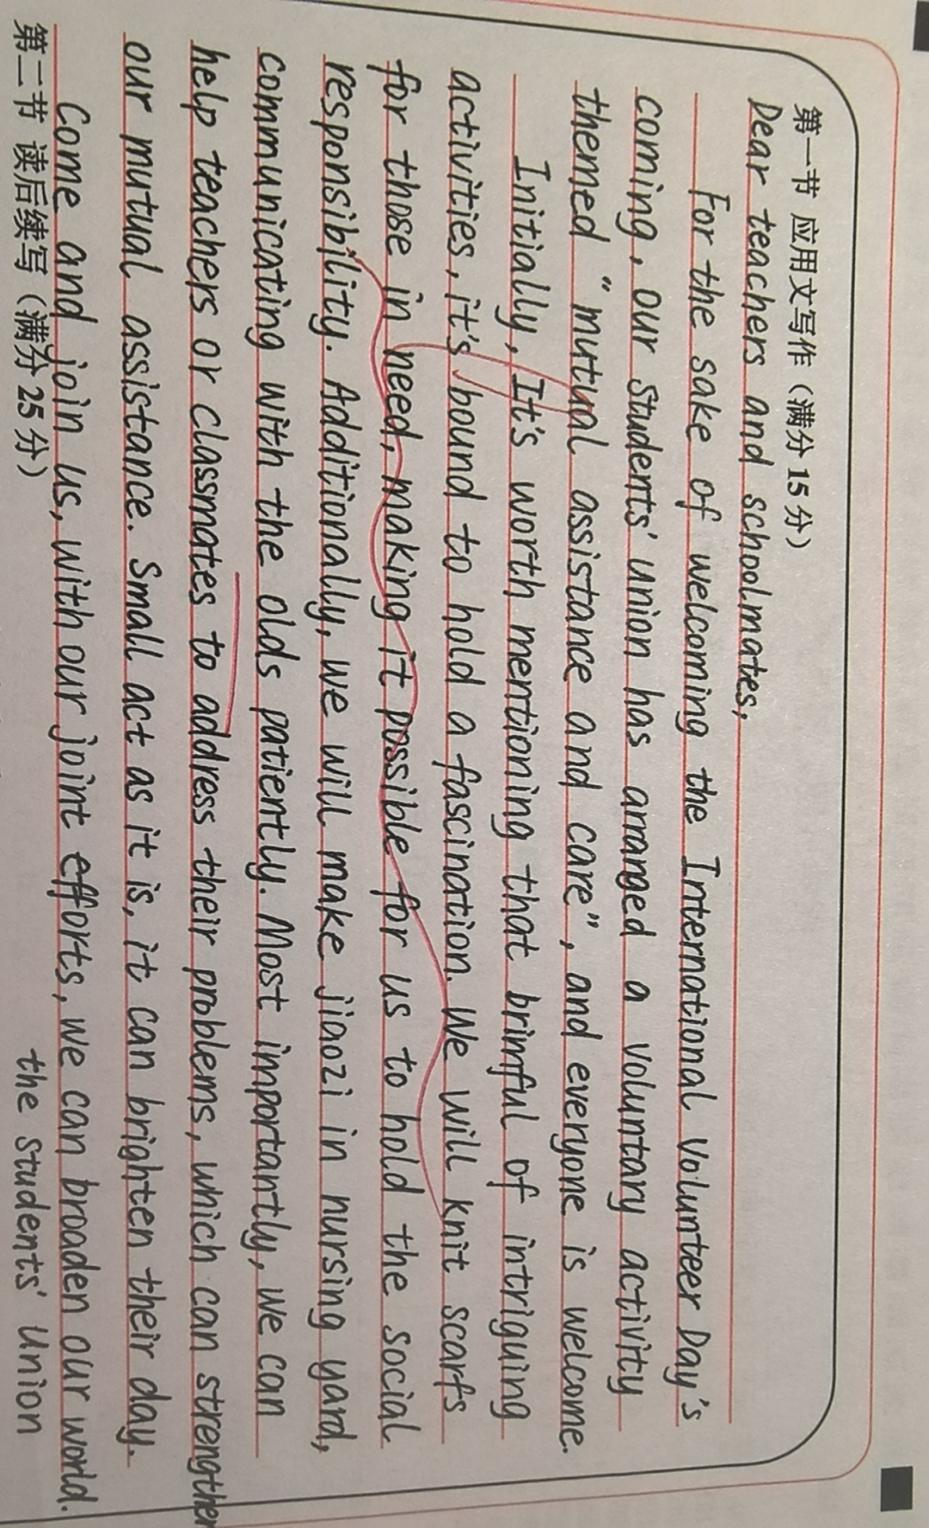 第一节 应用文写作（满分 15 分）
Dear teachers and schoolmates,
For the sake of welcoming the International Volunteer Day's
coming, our students' union has arranged a voluntary activity
themed "mutual assistance and care", and everyone is welcome.
Initially, It's worth mentioning that brimful of intriguing
activities, it's bound to hold a fascination. We will knit scarfs
for those in need, making it possible for us to hold the social
responsibility. Additionally, we will make jiaozi in nursing yard,
communicating with the olds patiently. Most importantly, we can
help teachers or classmates to address their problems, which can strengthen
our mutual assistance. Small act as it is, it can brighten their day.
Come and join us, with our joint efforts, we can broaden our world.
the students' Union
第二节 读后续写（满分 25 分）